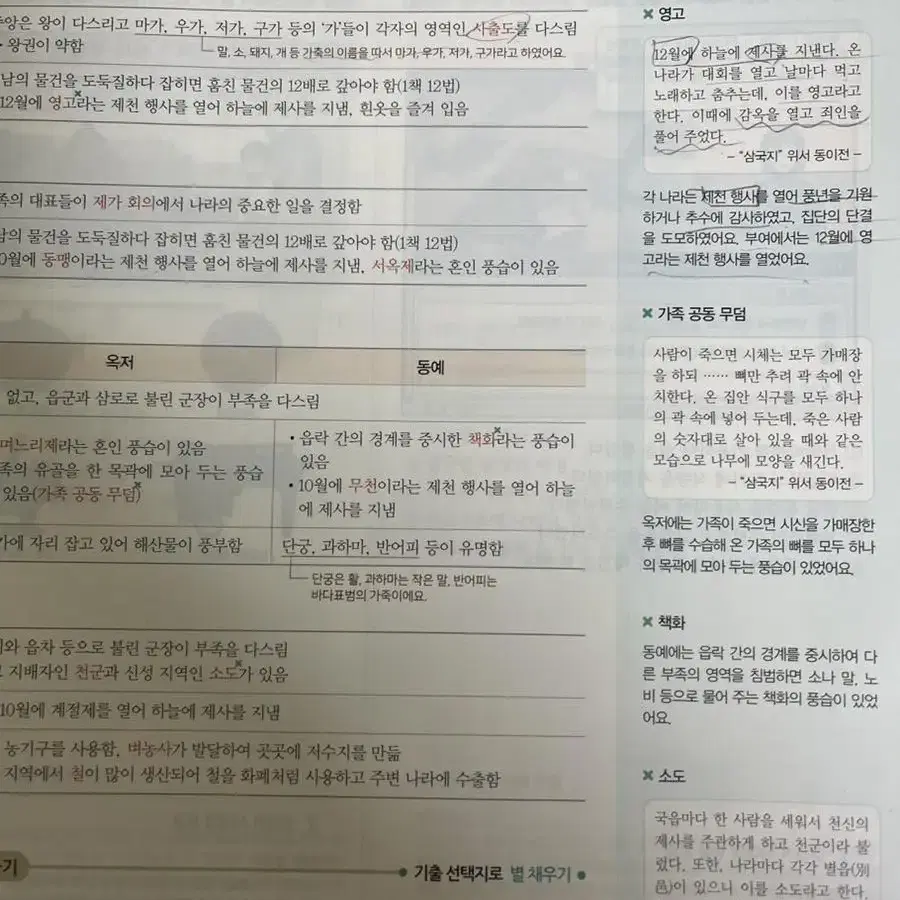 왕은 왕이 다스리고 마가, 우가, 저가, 구가 등의 '가'들이 각자의 영역인 사출도를 다스림
• 왕권이 약함
말, 소, 돼지, 개 등 가축의 이름을 따서 마가, 우가, 저가, 구가라고 하였어요.
남의 물건을 도둑질하다 잡히면 훔친 물건의 12배로 갚아야 함(1책 12법)
12월에 영고라는 제천 행사를 열어 하늘에 제사를 지냄, 흰옷을 즐겨 입음
족의 대표들이 제가 회의에서 나라의 중요한 일을 결정함
남의 물건을 도둑질하다 잡히면 훔친 물건의 12배로 갚아야 함(1책 12법)
0월에 동맹이라는 제천 행사를 열어 하늘에 제사를 지냄, 서옥제라는 혼인 풍습이 있음
옥저
동예
없고, 읍군과 삼로로 불린 군장이 부족을 다스림
며느리제라는 혼인 풍습이 있음
족의 유골을 한 목곽에 모아 두는 풍습
있음(가족 공동 무덤)
• 읍락 간의 경계를 중시한 책화라는 풍습이
있음
• 10월에 무천이라는 제천 행사를 열어 하늘
에 제사를 지냄
가에 자리 잡고 있어 해산물이 풍부함
단궁, 과하마, 반어피 등이 유명함
단궁은 활, 과하마는 작은 말, 반어피는
바다표범의 가죽이에요.
와 읍차 등으로 불린 군장이 부족을 다스림
지배자인 천군과 신성 지역인 소도가 있음
10월에 계절제를 열어 하늘에 제사를 지냄
농기구를 사용함, 벼농사가 발달하여 곳곳에 저수지를 만듦
지역에서 철이 많이 생산되어 철을 화폐처럼 사용하고 주변 나라에 수출함
기
기출 선택지로 별 채우기
영고
12월에 하늘에 제사를 지낸다. 온
나라가 대회를 열고 날마다 먹고
노래하고 춤추는데, 이를 영고라고
한다. 이때에 감옥을 열고 죄인을
풀어 주었다.
- "삼국지" 위서 동이전 -
각 나라는 제천 행사를 열어 풍년을 기원
하거나 추수에 감사하였고, 집단의 단결
을 도모하였어요. 부여에서는 12월에 영
고라는 제천 행사를 열었어요.
가족 공동 무덤
사람이 죽으면 시체는 모두 가매장
을 하되 …… 뼈만 추려 곽 속에 안
치한다. 온 집안 식구를 모두 하나
의 곽 속에 넣어 두는데, 죽은 사람
의 숫자대로 살아 있을 때와 같은
모습으로 나무에 모양을 새긴다.
- "삼국지" 위서 동이전 -
옥저에는 가족이 죽으면 시신을 가매장한
후 뼈를 수습해 온 가족의 뼈를 모두 하나
의 목곽에 모아 두는 풍습이 있었어요.
책화
동예에는 읍락 간의 경계를 중시하여 다
른 부족의 영역을 침범하면 소나 말, 노
비 등으로 물어 주는 책화의 풍습이 있었
어요.
소도
국읍마다 한 사람을 세워서 천신의
제사를 주관하게 하고 천군이라 불
렀다. 또한, 나라마다 각각 별읍(別
邑)이 있으니 이를 소도라고 한다.